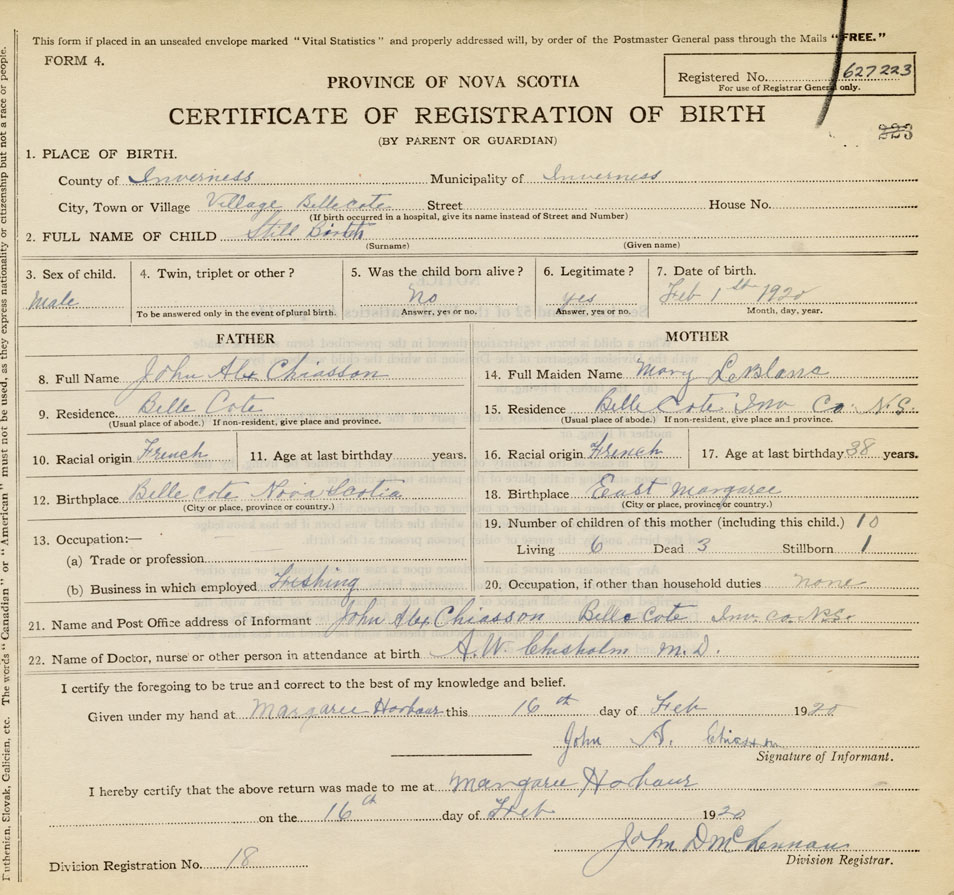 This form if placed in an unsealed envelope marked "Vital Statistics" and properly addressed will, by order of the Postmaster General pass through the Mails "FREE."
FORM 4.
PROVINCE OF NOVA SCOTIA
Registered No. 627223
For use of Registrar General only.
CERTIFICATE OF REGISTRATION OF BIRTH
223
(BY PARENT OR GUARDIAN)
1. PLACE OF BIRTH.
County of Inverness Municipality of Inverness
City, Town or Village Village Belle cote Street House No.
(If birth occurred in a hospital, give its name instead of Street and Number)
2. FULL NAME OF CHILD Still Birth
(Surname) (Given name)
3. Sex of child. 4. Twin, triplet or other? 5. Was the child born alive? 6. Legitimate? 7. Date of birth.
Male no yes Feb 1st 1920
To be answered only in the event of plural birth. Answer, yes or no. Answer, yes or no. Month, day, year.
FATHER MOTHER
8. Full Name John Alex Chiasson 14. Full Maiden Name Mary LeBlanc
9. Residence. Belle Cote 15. Residence Belle Cote Inv Co. N.S.
(Usual place of abode.) If non-resident, give place and province. (Usual place of abode.) If non-resident, give place and province.
10. Racial origin French 11. Age at last birthday years. 16. Racial origin French 17. Age at last birthday 38 years.
12. Birthplace Belle cote Nova Scotia 18. Birthplace East Margaree
(City or place, province or country.) (City or place, province or country.)
13. Occupation:— 19. Number of children of this mother (including this child.) 10
(a) Trade or profession Living 6 Dead 3 Stillborn 1
(b) Business in which employed Fishing 20. Occupation, if other than household duties none
21. Name and Post Office address of Informant John Alex Chiasson Belle Cote Inv. co. N.S.
22. Name of Doctor, nurse or other person in attendance at birth A. W. Chisholm M. D.
I certify the foregoing to be true and correct to the best of my knowledge and belief.
Given under my hand at Margaree Harbour this 16th day of Feb 1920
John A. Chiasson
Signature of Informant.
I hereby certify that the above return was made to me at Margaree Harbour
on the 16th day of Feb 1920
John D McLennan
Division Registration No. 18 Division Registrar.
Slovak, Galician, etc. The words "Canadian" or "American" must not be used, as they express nationality or citizenship but not a race or people.